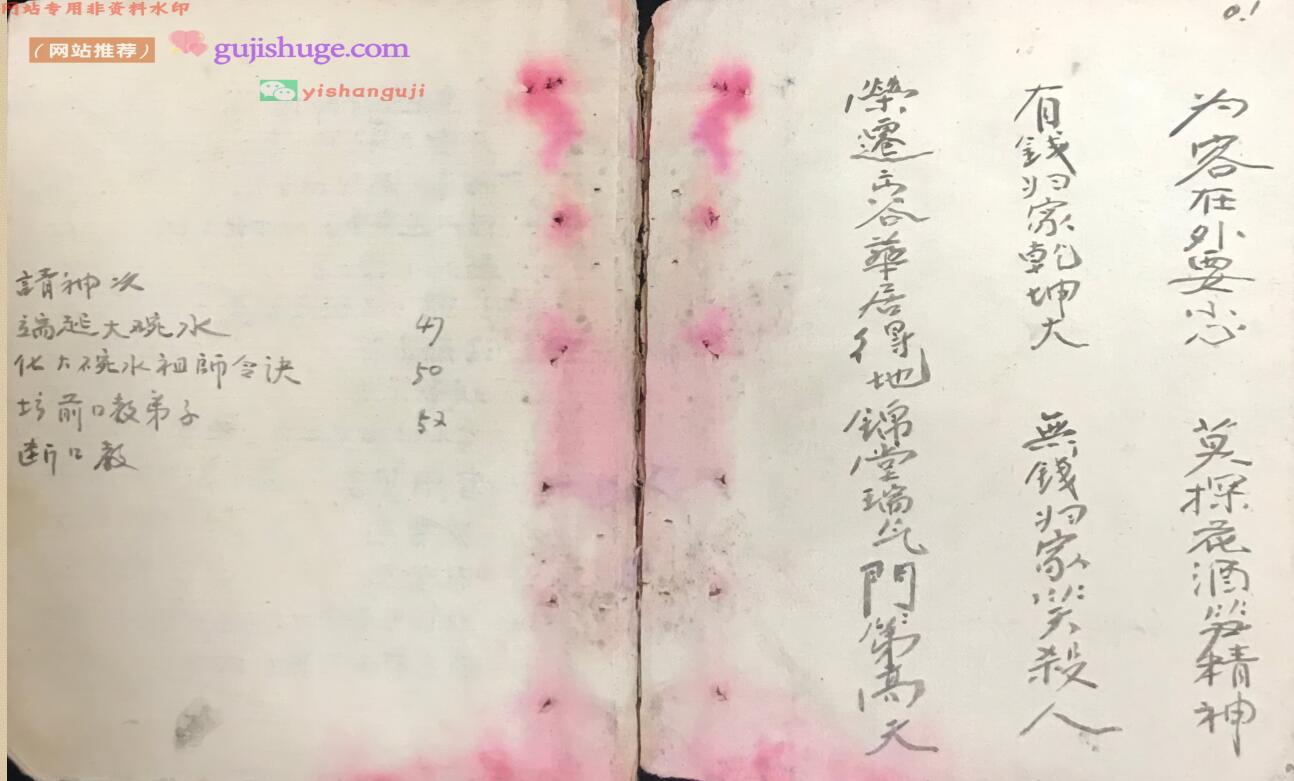 网站专用非资料水印
(网站推荐)
gujishuge.com
yishanguji
0.1
为客在外要小心 莫探花酒劳精神
有錢归家乾坤大 無錢归家笑殺人
榮遷 華居得地 錦堂瑞气門第高天
請神次
端起大碗水 47
化大碗水祖師令诀 50
坛前口教弟子 52
断口教